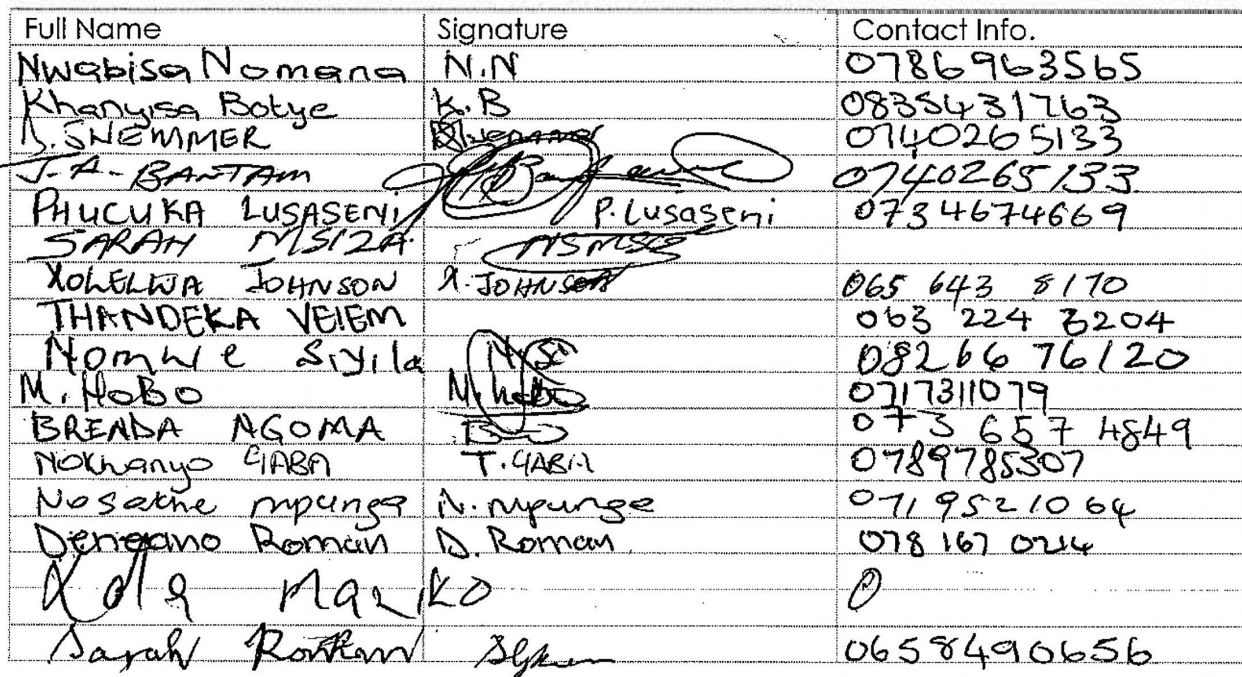 Full Name Signature Contact Info.
Nwabisa Nomana N.N 0786963565
Khanyisa Botye K.B 0835431763
SNEMMER 0740265133
J.A. BANTAM 0740265133
PHUCUKA LUSASENI P. Lusaseni 0734674669
SARAH MSIZA
XOLELWA JOHNSON X. JOHNSON 065 643 8170
THANDEKA VEIEM 063 224 3204
Nomwe Siyila 08266 76120
M. HoBo M. HoBo 0717311079
BRENDA NGOMA 073 657 4849
Nokhanyo GABA T. GABA 0789785307
Nosakhe mpunga N. mpunga 0719521064
Deneano Roman D. Roman 078 167 0214
Xola Maziko 0
Sarah 0658490656